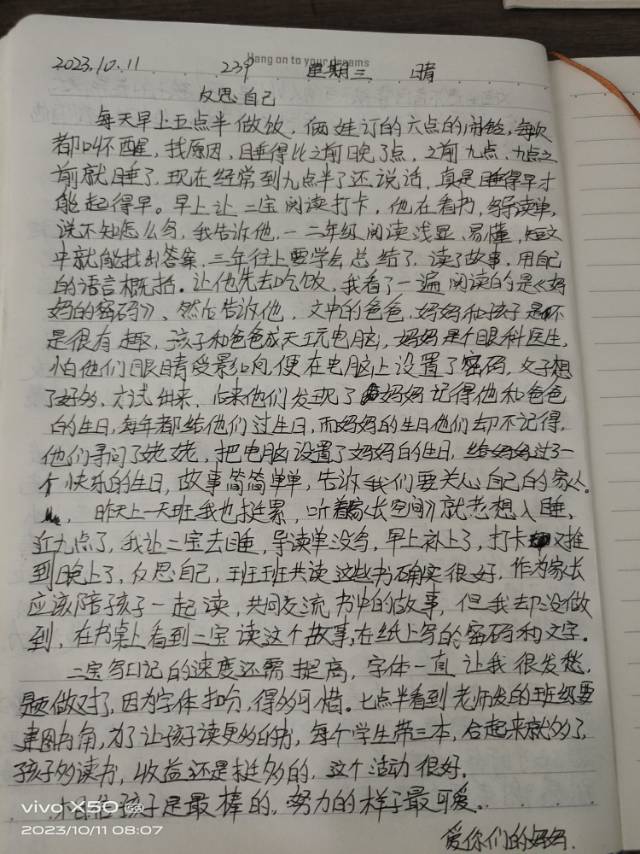 Hang on to your dreams
2023.10.11 239 星期三 晴
反思自己
每天早上五点半做饭,俩娃订的六点的闹铃,每次
都叫不醒,找原因,睡得比之前晚了点,之前九点,九点之
前就睡了,现在经常到九点半了还说话,真是睡得早才
能起得早。早上让二宝阅读打卡,他在看书,写导读单,
说不知怎么写,我告诉他,一二年级阅读浅显、易懂,短文
中就能找到答案,三年往上要学会总结了,读了故事,用自己
的语言概括。让他先去吃饭,我看了一遍阅读的是《妈
妈的密码》、然后告诉他,文中的爸爸,妈妈和孩子是不
是很有趣,孩子和爸爸成天玩电脑,妈妈是个眼科医生,
怕他们眼睛受影响,便在电脑上设置了密码,父子想
了好多,才试出来,后来他们发现了妈妈记得他和爸爸
的生日,每年都给他们过生日,而妈妈的生日他们却不记得,
他们寻问了姥姥,把电脑设置了妈妈的生日,给妈妈过了一
个快乐的生日,故事简简单单,告诉我们要关心自己的家人。
昨天上一天班我也挺累,听着《家长空间》就老想入睡,
近九点了,我让二宝去睡,导读单没写,早上补上了,打卡又推
到晚上了,反思自己,班班共读这些书确实很好,作为家长
应该陪孩子一起读,共同交流书中的故事,但我却没做
到,在书桌上看到二宝读这个故事,在纸上写的密码和文字。
二宝写日记的速度还需提高,字体一直让我很发愁,
题做对了,因为字体扣分,得多可惜。七点半看到老师发的班级要
建图书角,为了让孩子读更多的书,每个学生带三本,合起来就多了,
孩子多读书,收益还是挺多的,这个活动很好。
相信孩子是最棒的,努力的样子最可爱。
爱你们的妈妈.
vivo X50
2023/10/11 08:07